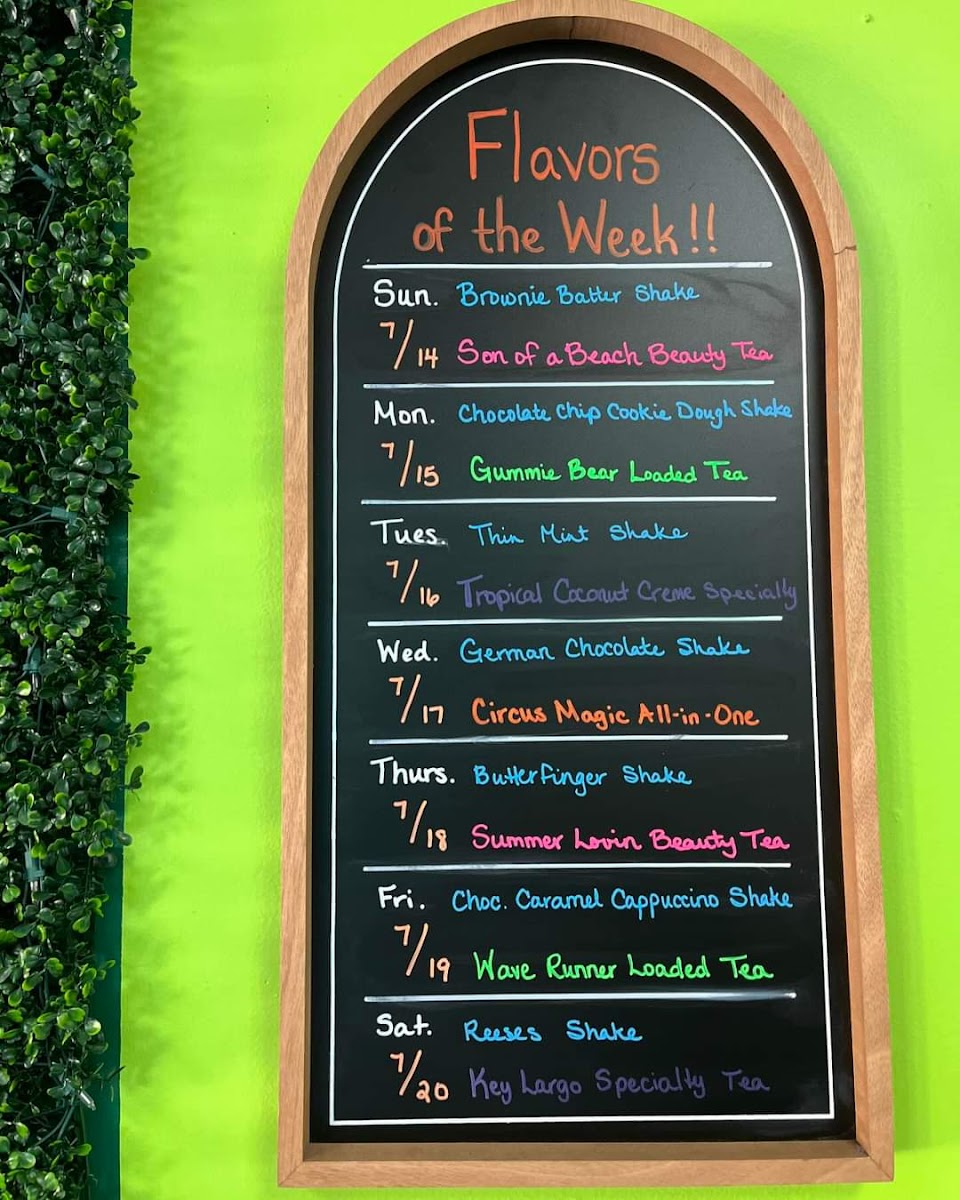 Flavors
of the Week!!
Sun. Brownie Batter Shake
7/14 Son of a Beach Beauty Tea
Mon. Chocolate Chip Cookie Dough Shake
7/15 Gummie Bear Loaded Tea
Tues. Thin Mint Shake
7/16 Tropical Coconut Creme Specialty
Wed. German Chocolate Shake
7/17 Circus Magic All-in-One
Thurs. Butterfinger Shake
7/18 Summer Lovin Beauty Tea
Fri. Choc. Caramel Cappuccino Shake
7/19 Wave Runner Loaded Tea
Sat. Reeses Shake
7/20 Key Largo Specialty Tea